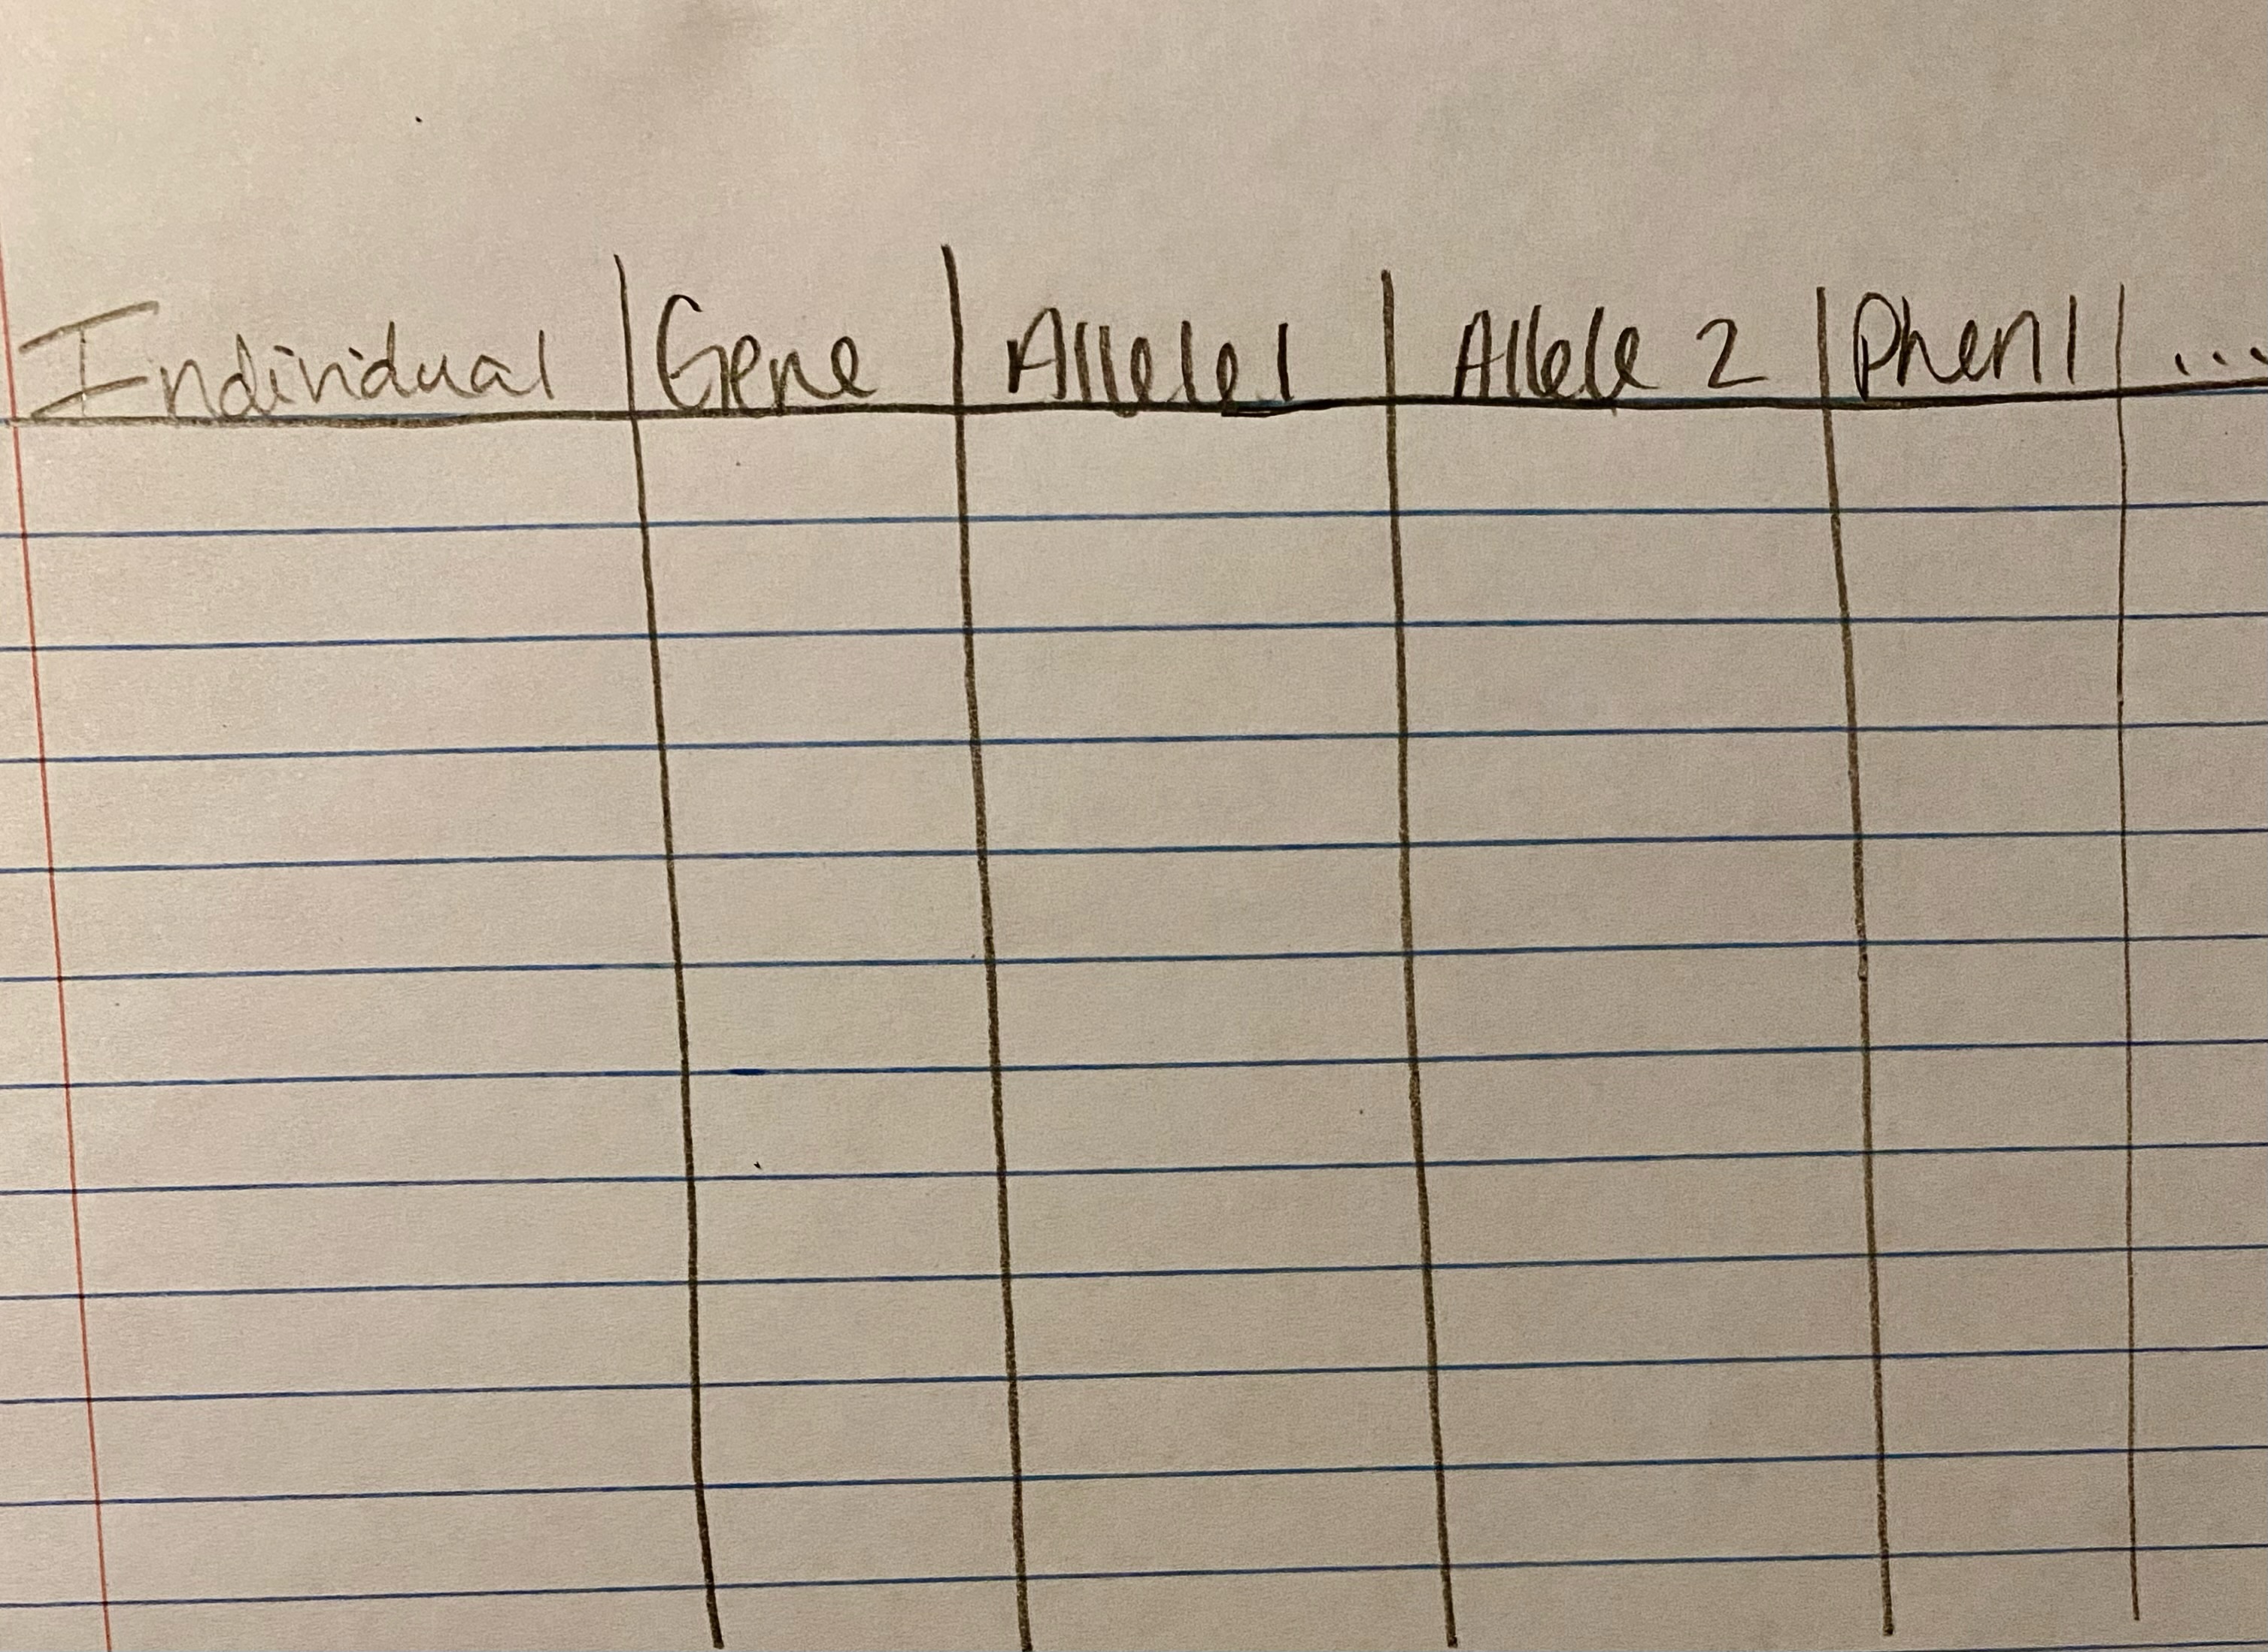 Individual Gene Allele 1 Allele 2 Phen 1 ...